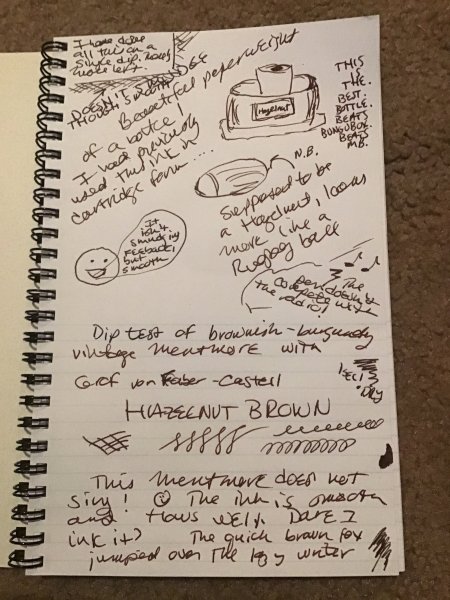 I have done
all this on a
single dip. Loads
more left.
DOESN'T
THOUGH SMOOTH
Beautiful paperweight
of a bottle!
I had previously
used this ink in
cartridge form....
Hazelnut
THIS
IS
THE.
BEST.
BOTTLE.
BEATS
BUNGUBOX.
BEATS
MB.
N.B.
Supposed to be
a Hazelnut, looks
more like a
Rugby ball
It
isn't
smudging
feedback,
but
smooth
The
pen doesn't
compete with
the radio!
Dip test of brownish-burgundy
vintage mentmore with
Graf von Faber-Castell
HAZELNUT BROWN
Dry
This mentmore does not
sing! The ink is smooth
and flows well. Dare I
ink it? The quick brown fox
jumped over the lazy writer